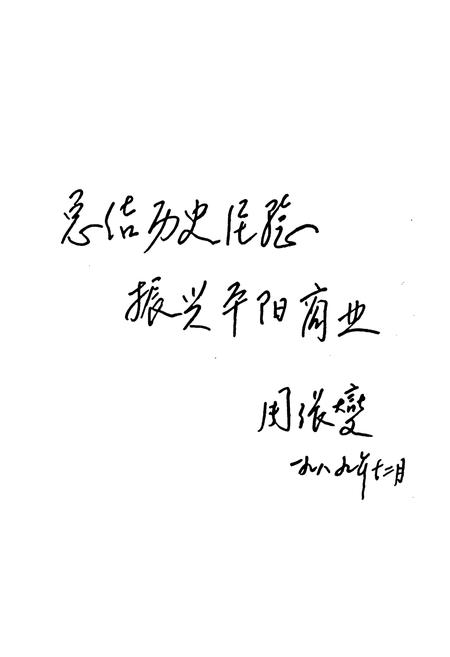 总结历史经验
振兴平阳商业
周张燮
一九八九年十二月